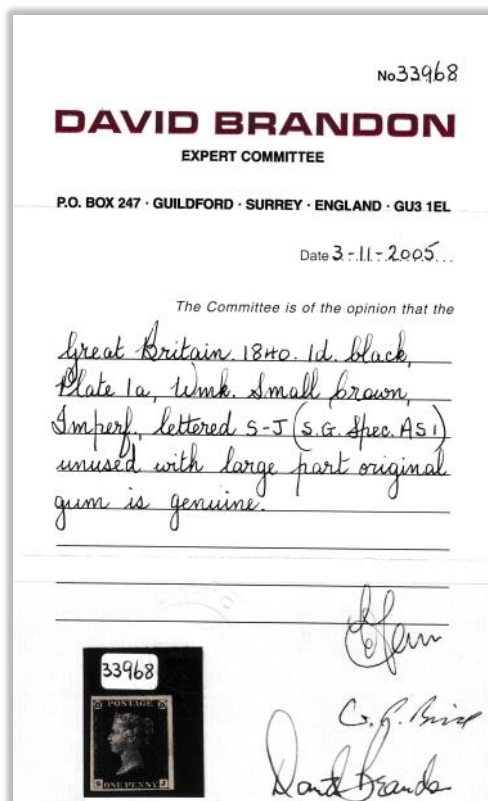 No 33968
DAVID BRANDON
EXPERT COMMITTEE
P.O. BOX 247 · GUILDFORD · SURREY · ENGLAND · GU3 1EL
Date 3-11-2005
The Committee is of the opinion that the
Great Britain. 1840. 1d. black,
Plate 1a, Wmk. Small Crown,
Imperf., lettered S-J (S.G. Spec. AS1)
unused with large part original
gum is genuine.
33968
POSTAGE
S ONE PENNY J
David Brandon